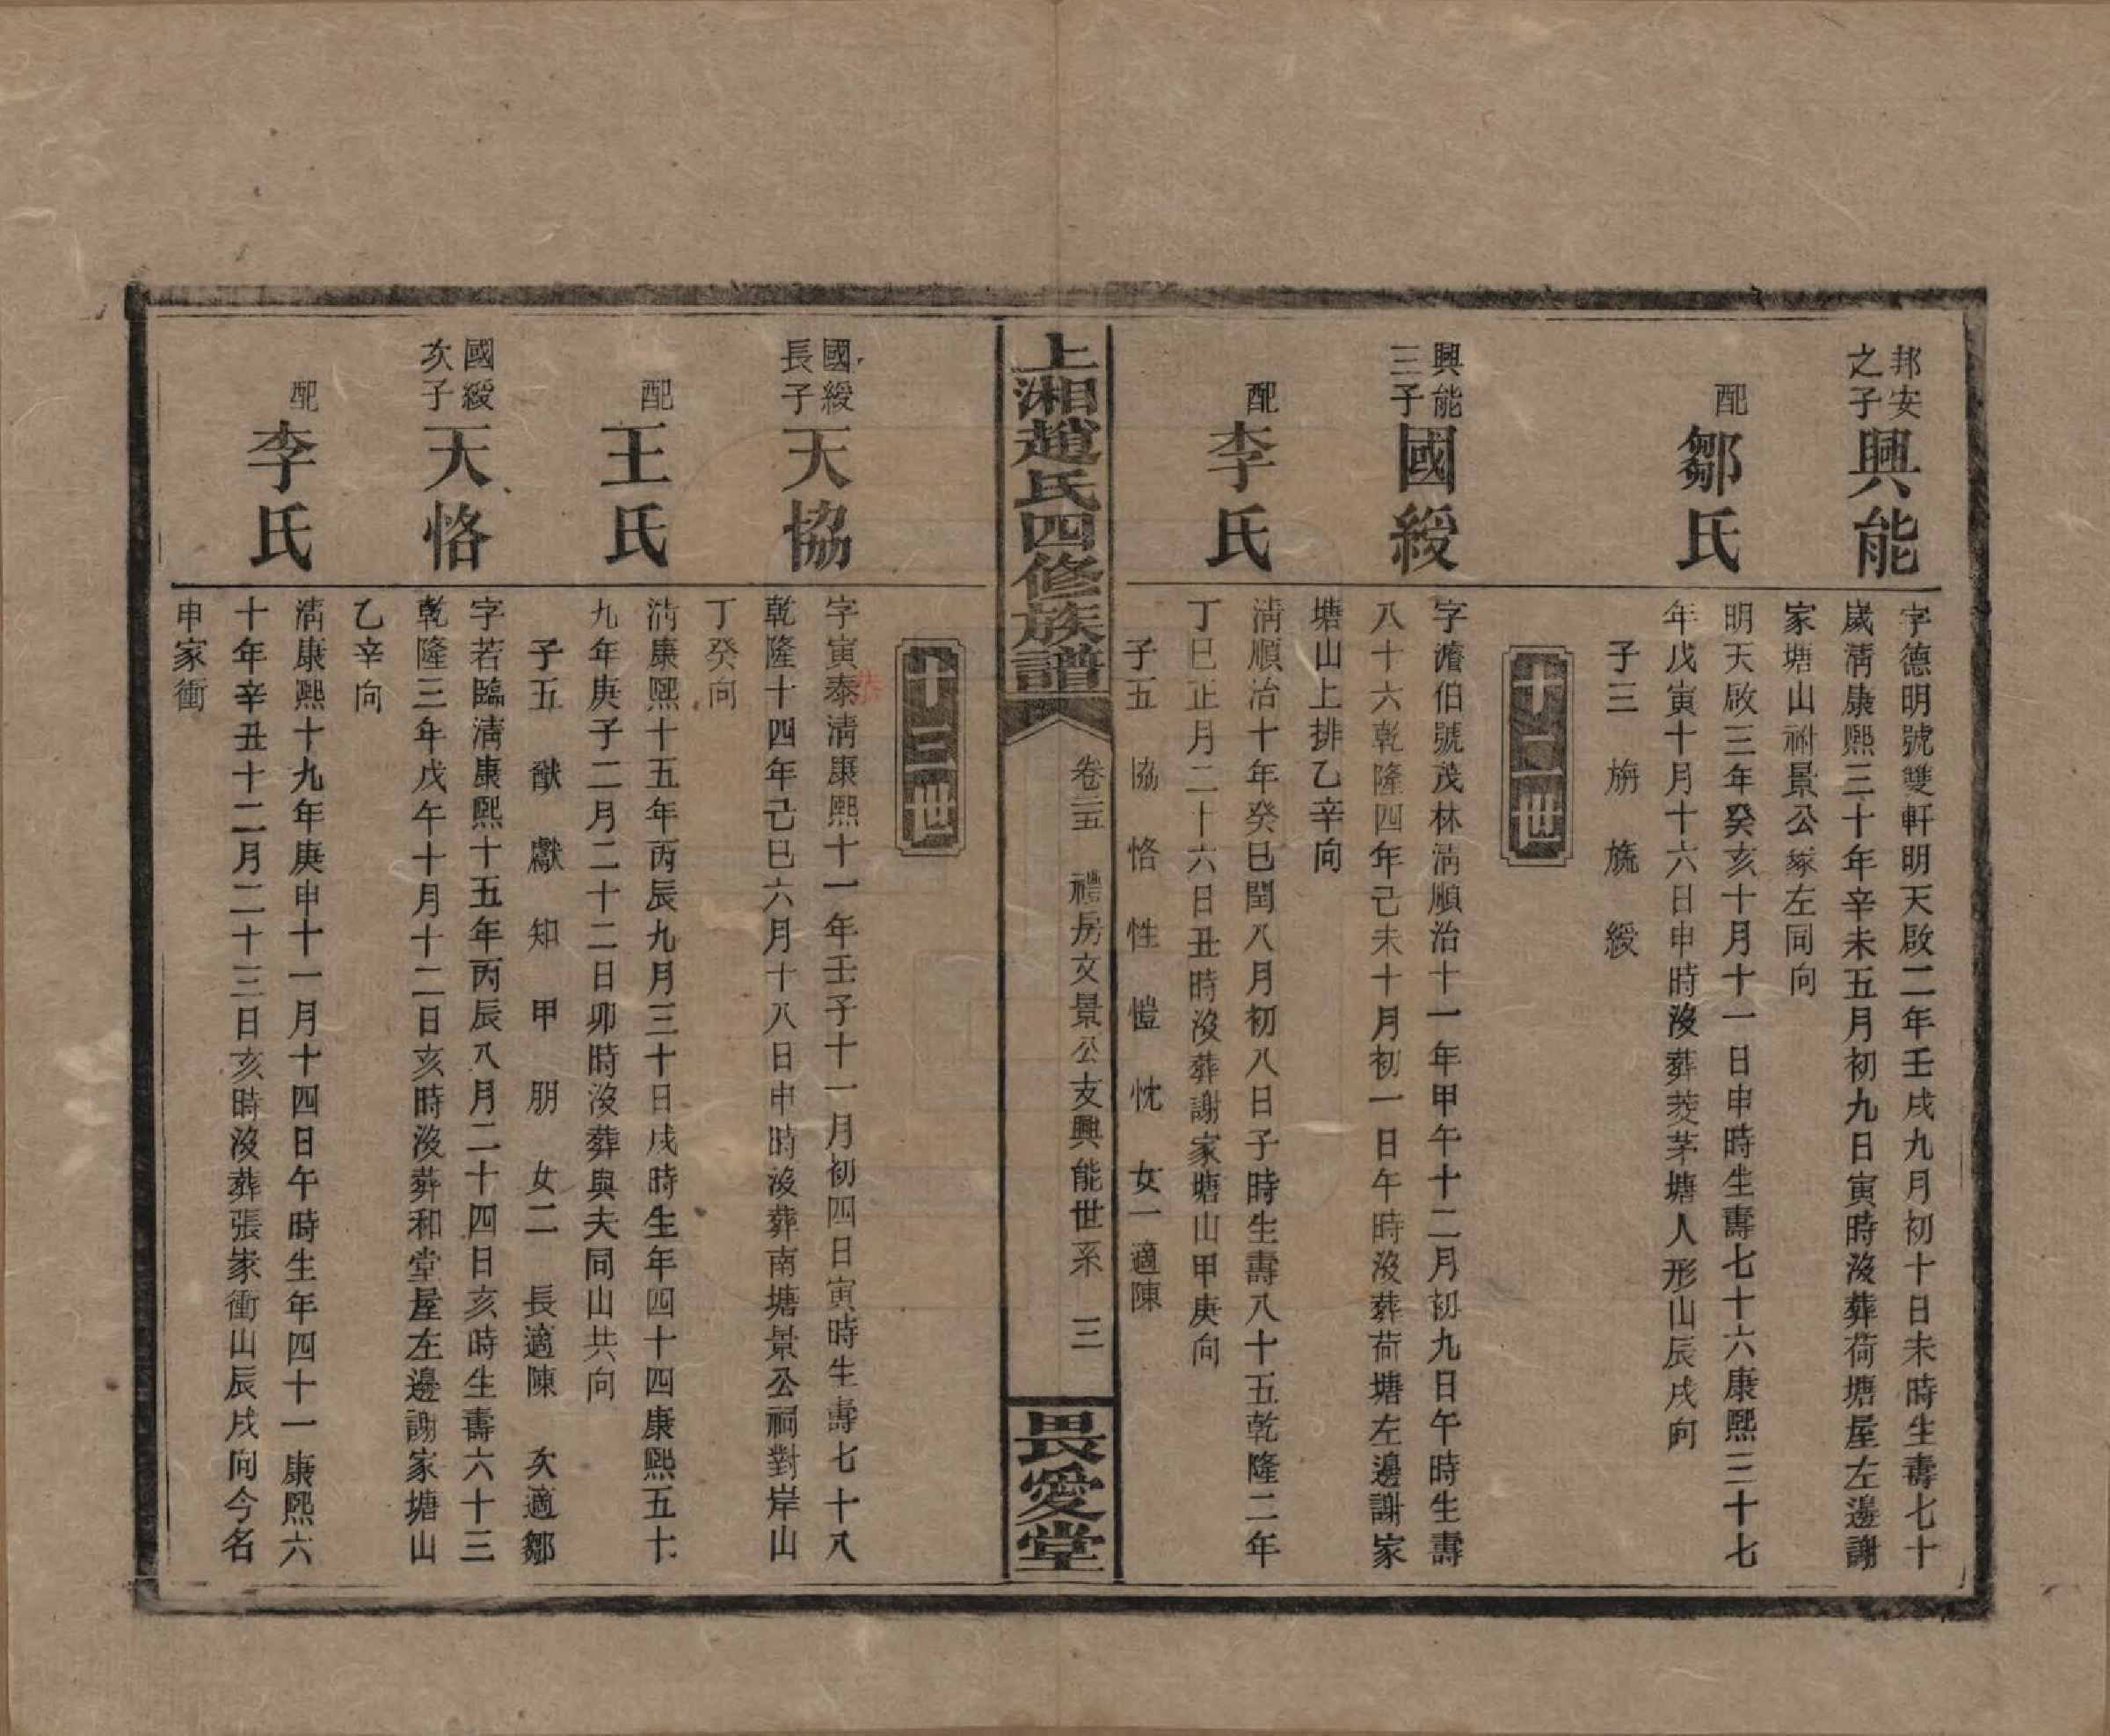 邦安
之子
興能
字德明號雙軒明天啟二年壬戌九月初十日未時生壽七十
歲淸康熙三十年辛未五月初九日寅時沒葬荷塘屋左邊謝
家塘山祔景公冢左同向
配
鄒氏
明天啟三年癸亥十月十一日申時生壽七十六康熙三十七
年戊寅十月十六日申時沒葬茭茅塘人形山辰戌向
子三 旃 旒 綬
十二世
興能
三子
國綬
字澹伯號茂林淸順治十一年甲午十二月初九日午時生壽
八十六乾隆四年己未十月初一日午時沒葬荷塘左邊謝家
塘山上排乙辛向
配
李氏
淸順治十年癸巳閏八月初八日子時生壽八十五乾隆二年
丁巳正月二十六日丑時沒葬謝家塘山甲庚向
子五 協 恪 性 愷 忱 女一適陳
上湘趙氏四修族譜
卷三五 禮房文景公支興能世系 三
畏愛堂
十三世
國綬
長子
天協
字寅恭泰淸康熙十一年壬子十一月初四日寅時生壽七十八
乾隆十四年己巳六月十八日申時沒葬南塘景公祠對岸山
丁癸向
配
王氏
淸康熙十五年丙辰九月三十日戌時生年四十四康熙五十
九年庚子二月二十二日卯時沒葬與夫同山共向
子五 猷 獻 知 甲 朋 女二 長適陳 次適鄒
國綬
次子
天恪
字若臨淸康熙十五年丙辰八月二十四日亥時生壽六十三
乾隆三年戊午十月十二日亥時沒葬和堂屋左邊謝家塘山
乙辛向
配
李氏
淸康熙十九年庚申十一月十四日午時生年四十一康熙六
十年辛丑十二月二十三日亥時沒葬張家衝山辰戌向今名
申家衝